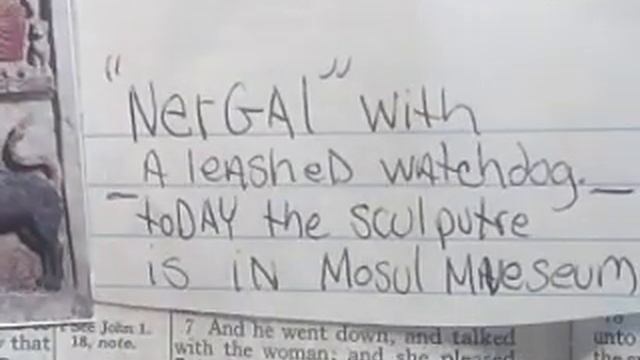 "NerGAl" with
A leASheD watchdog.—
toDAY the sculputre
is iN Mosul MNeseum
See John 1.
18, note.
that
7 And he went down, and talked
with the woman; and she pleased
unto